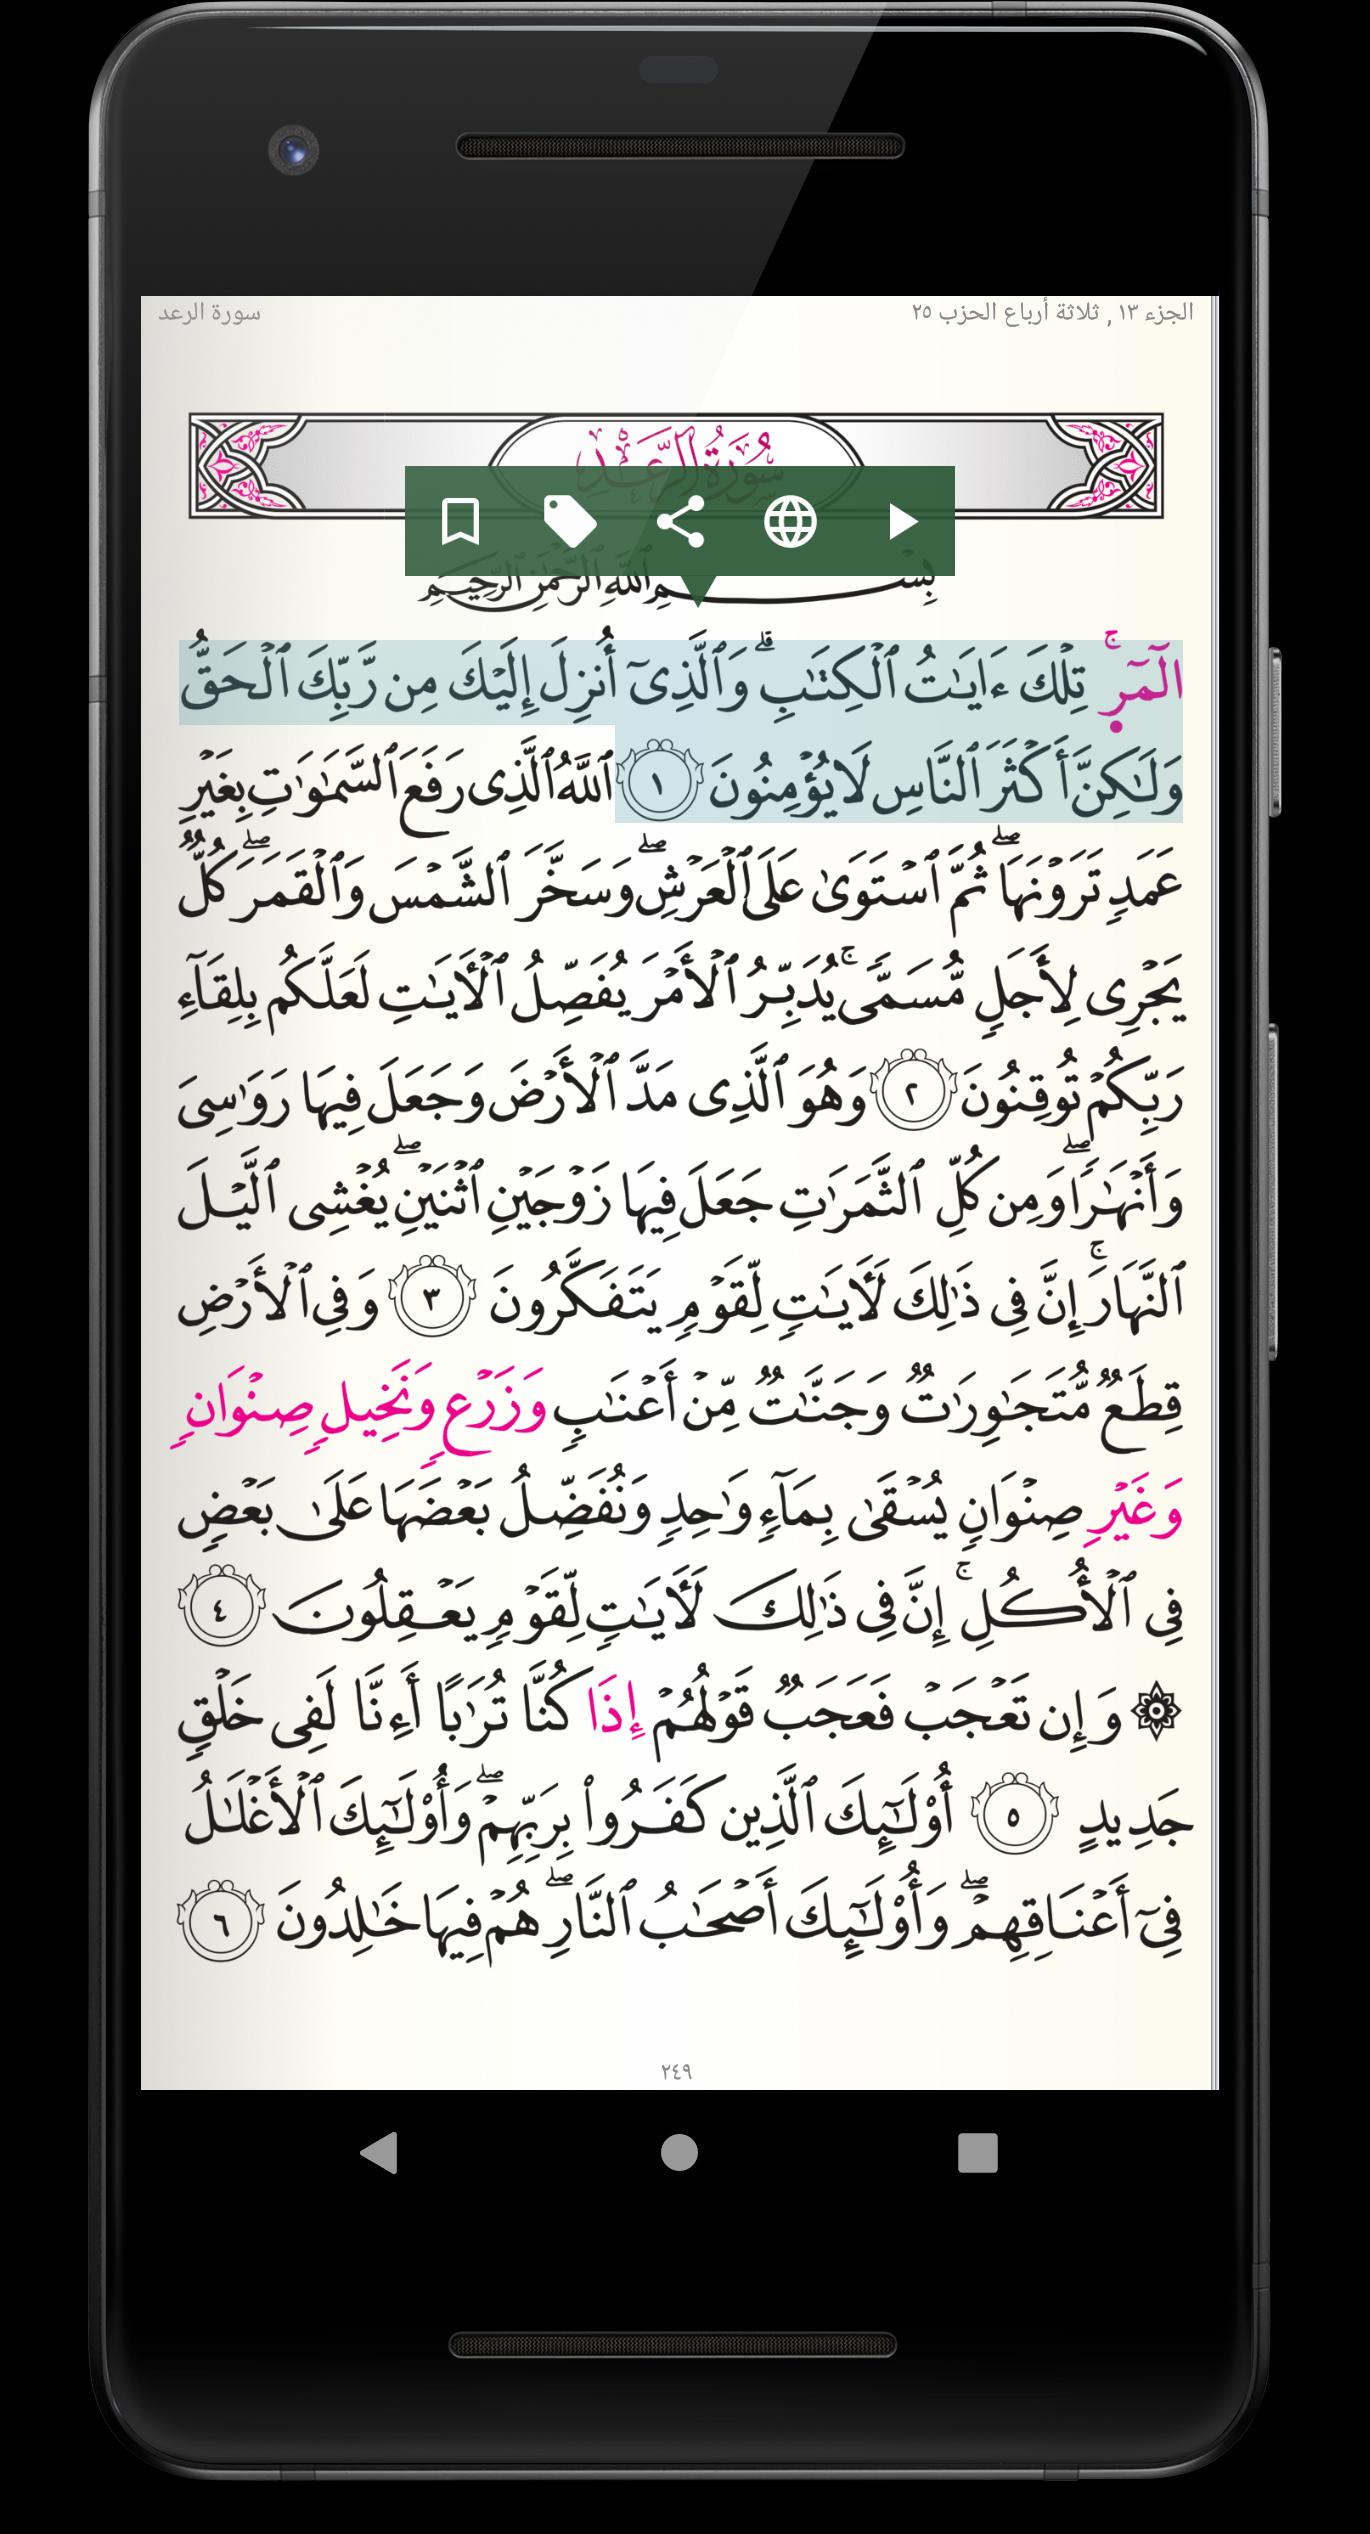 الجزء ١٣ , ثلاثة أرباع الحزب ٢٥
سورة الرعد
سُورَةُ الرَّعْدِ
بِسْمِ ٱللَّهِ ٱلرَّحْمَٰنِ ٱلرَّحِيمِ
الٓمٓرۚ تِلْكَ ءَايَٰتُ ٱلْكِتَٰبِۗ وَٱلَّذِىٓ أُنزِلَ إِلَيْكَ مِن رَّبِّكَ ٱلْحَقُّ
وَلَٰكِنَّ أَكْثَرَ ٱلنَّاسِ لَا يُؤْمِنُونَ ١ ٱللَّهُ ٱلَّذِى رَفَعَ ٱلسَّمَٰوَٰتِ بِغَيْرِ
عَمَدٍ تَرَوْنَهَاۖ ثُمَّ ٱسْتَوَىٰ عَلَى ٱلْعَرْشِۖ وَسَخَّرَ ٱلشَّمْسَ وَٱلْقَمَرَۖ كُلٌّ
يَجْرِى لِأَجَلٍ مُّسَمًّىۚ يُدَبِّرُ ٱلْأَمْرَ يُفَصِّلُ ٱلْأٓيَٰتِ لَعَلَّكُم بِلِقَآءِ
رَبِّكُمْ تُوقِنُونَ ٢ وَهُوَ ٱلَّذِى مَدَّ ٱلْأَرْضَ وَجَعَلَ فِيهَا رَوَٰسِىَ
وَأَنْهَٰرًاۖ وَمِن كُلِّ ٱلثَّمَرَٰتِ جَعَلَ فِيهَا زَوْجَيْنِ ٱثْنَيْنِۖ يُغْشِى ٱلَّيْلَ
ٱلنَّهَارَۚ إِنَّ فِى ذَٰلِكَ لَأٓيَٰتٍ لِّقَوْمٍ يَتَفَكَّرُونَ ٣ وَفِى ٱلْأَرْضِ
قِطَعٌ مُّتَجَٰوِرَٰتٌ وَجَنَّٰتٌ مِّنْ أَعْنَٰبٍ وَزَرْعٍ وَنَخِيلٍ صِنْوَانٍ
وَغَيْرِ صِنْوَانٍ يُسْقَىٰ بِمَآءٍ وَٰحِدٍ وَنُفَضِّلُ بَعْضَهَا عَلَىٰ بَعْضٍ
فِى ٱلْأُكُلِۚ إِنَّ فِى ذَٰلِكَ لَأٓيَٰتٍ لِّقَوْمٍ يَعْقِلُونَ ٤
۞ وَإِن تَعْجَبْ فَعَجَبٌ قَوْلُهُمْ إِذَا كُنَّا تُرَٰبًا أَءِنَّا لَفِى خَلْقٍ
جَدِيدٍ ٥ أُوْلَٰٓئِكَ ٱلَّذِين كَفَرُوا۟ بِرَبِّهِمْۖ وَأُوْلَٰٓئِكَ ٱلْأَغْلَٰلُ
فِىٓ أَعْنَاقِهِمْۖ وَأُوْلَٰٓئِكَ أَصْحَٰبُ ٱلنَّارِۖ هُمْ فِيهَا خَٰلِدُونَ ٦
٢٤٩